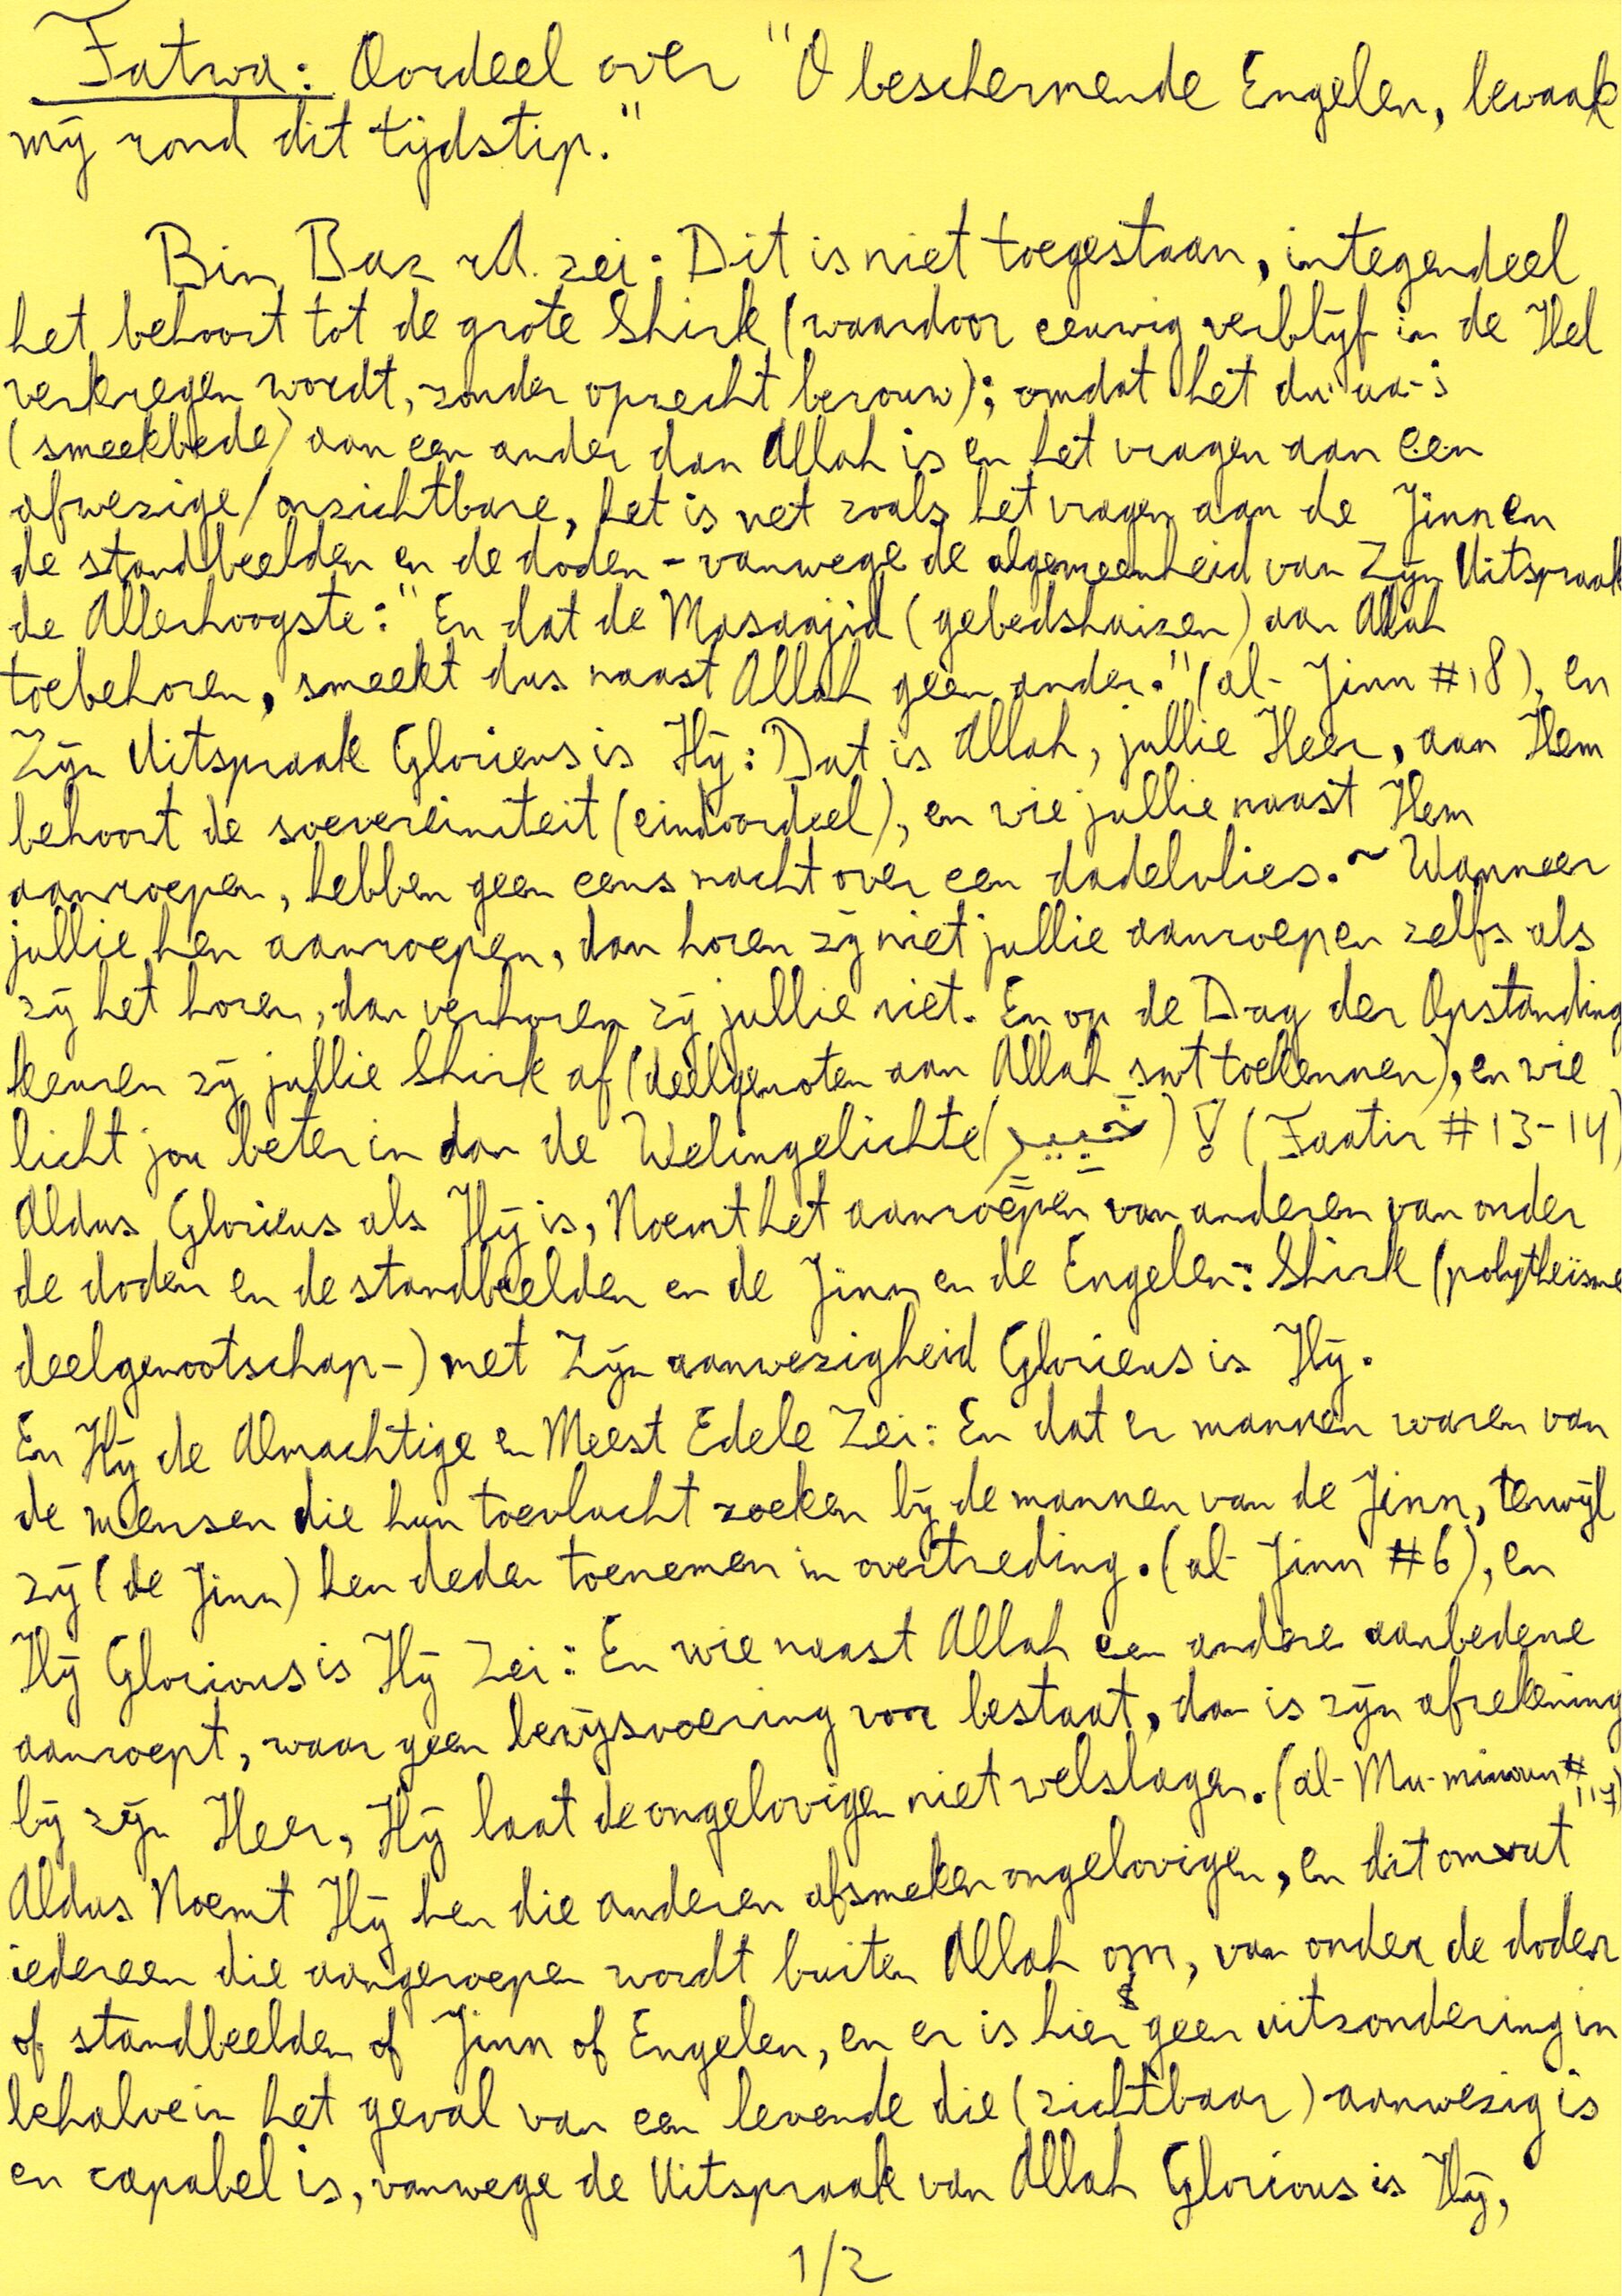 Fatwa: Oordeel over "O beschermende Engelen, bewaak
mij rond dit tijdstip."
Bin Baz rh. zei: Dit is niet toegestaan, integendeel
het behoort tot de grote Shirk (waardoor eeuwig verblijf in de Hel
verkregen wordt, zonder oprecht berouw); omdat het du'aa-i
(smeekbede) aan een ander dan Allah is en het vragen aan een
afwezige/onzichtbare, het is net zoals het vragen aan de Jinn en
de standbeelden en de doden - vanwege de algemeenheid van Zijn Uitspraak
de Allerhoogste: "En dat de Masaajid (gebedshuizen) aan Allah
toebehoren, smeekt dus naast Allah geen ander." (al-Jinn #18), en
Zijn Uitspraak Glorieus is Hij: Dat is Allah, jullie Heer, aan Hem
behoort de soevereiniteit (eindoordeel), en wie jullie naast Hem
aanroepen, hebben geen eens macht over een dadelvlies. ~ Wanneer
jullie hen aanroepen, dan horen zij niet jullie aanroepen zelfs als
zij het horen, dan verhoren zij jullie niet. En op de Dag der Opstanding
keuren zij jullie Shirk af (deelgenoten aan Allah swt toekennen), en wie
licht jou beter in dan de Welingelichte (خبير)! (Faatir #13-14)
Aldus Glorieus als Hij is, Noemt het aanroepen van anderen van onder
de doden en de standbeelden en de Jinn en de Engelen: Shirk (polytheïsme
deelgenootschap-) met Zijn aanwezigheid Glorieus is Hij.
En Hij de Almachtige en Meest Edele Zei: En dat er mannen waren van
de mensen die hun toevlucht zoeken bij de mannen van de Jinn, terwijl
zij (de Jinn) hen deden toenemen in overtreding. (al-Jinn #6), en
Hij Glorious is Hij Zei: En wie naast Allah een andere aanbedene
aanroept, waar geen bewijsvoering voor bestaat, dan is zijn afrekening
bij zijn Heer, Hij laat de ongelovigen niet welslagen. (al-Mu-minoun #117)
Aldus Noemt Hij hen die anderen afsmeken ongelovigen, en dit omvat
iedereen die aangeroepen wordt buiten Allah om, van onder de doden
of standbeelden of Jinn of Engelen, en er is hier geen uitzondering in
behalve in het geval van een levende die (zichtbaar) aanwezig is
en capabel is, vanwege de Uitspraak van Allah Glorious is Hij,
1/2